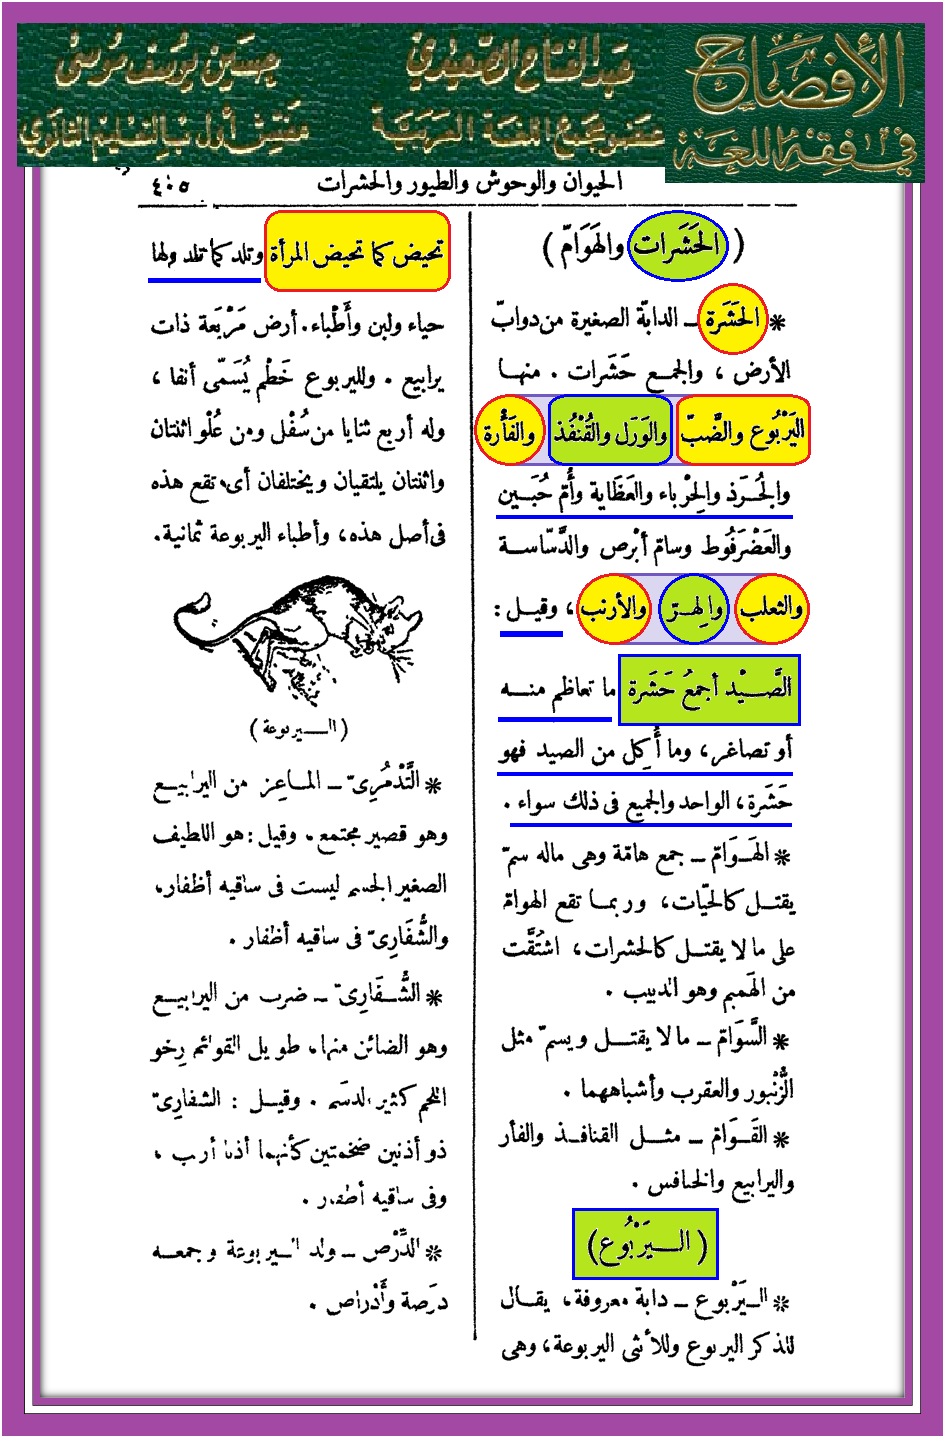 الإفصاح
في فقه اللغة
عبد الفتاح الصعيدي
عضو مجمع اللغة العربية
حسين يوسف موسى
مفتش أول بالتعليم الثانوي
الحيوان والوحوش والطيور والحشرات
٤٠٥
( الحَشَرات والهَوَامّ )
* الحَشَرة ــ الدابّة الصغيرة من دوابّ
الأرض ، والجمع حَشَرات . منها
اليَرْبُوع والضَّبّ والوَرَل والقُنْفُذ والفَأْرة
والجُرَذ والحِرْباء والعَظَاية وأُمّ حُبَين
والعَضْرَفُوط وسامّ أبْرص والدَّسّاسة
والثعلب والهِرّ والأرنب ، وقيل :
الصَّيْد أجمعُ حَشَرة ما تعاظم منه
أو تصاغر ، وما أُكِل من الصيد فهو
حَشَرة ، الواحد والجميع فى ذلك سواء .
* الهَوَامّ ــ جمع هامّة وهى ماله سمّ
يقتل كالحيّات ، وربما تقع الهوامّ
على ما لا يقتل كالحشرات ، اشتُقَّت
من الهَميم وهو الدبيب .
* السَّوَامّ ــ ما لا يقتل ويسمّ مثل
الزُّنبور والعقرب وأشباههما .
* القَوَامّ ــ مثل القنافذ والفأر
واليرابيع والخنافس .
( اليَرْبُوع )
* اليَرْبوع ــ دابة معروفة ، يقال
للذكر اليربوع وللأنثى اليربوعة ، وهى
تحيض كما تحيض المرأة وتلد كما تلد ولها
حياء ولبن وأَطْباء . أرض مَرْبَعة ذات
يرابيع . ولليربوع خَطْم يُسَمّى أنفا ،
وله أربع ثنايا من سُفْل ومن عُلْو اثنتان
واثنتان يلتقيان ويختلفان أى تقع هذه
فى أصل هذه ، وأطباء اليربوعة ثمانية .
( اليربوعة )
* التَّدْمُرِىّ ــ الماعِز من اليرابيع
وهو قصير مجتمع . وقيل : هو اللطيف
الصغير الجسم ليست فى ساقيه أظفار ،
والشُّفَارِىّ فى ساقيه أظفار .
* الشُّفَارِىّ ــ ضرب من اليرابيع
وهو الضائن منها ، طويل القوائم رِخو
اللحم كثير الدسَم . وقيل : الشفارىّ
ذو أذنين ضخمتين كأنهما أذنا أرنب ،
وفى ساقيه أظفار .
* الدِّرْص ــ ولد اليربوعة وجمعه
درَصة وأَدْراص .